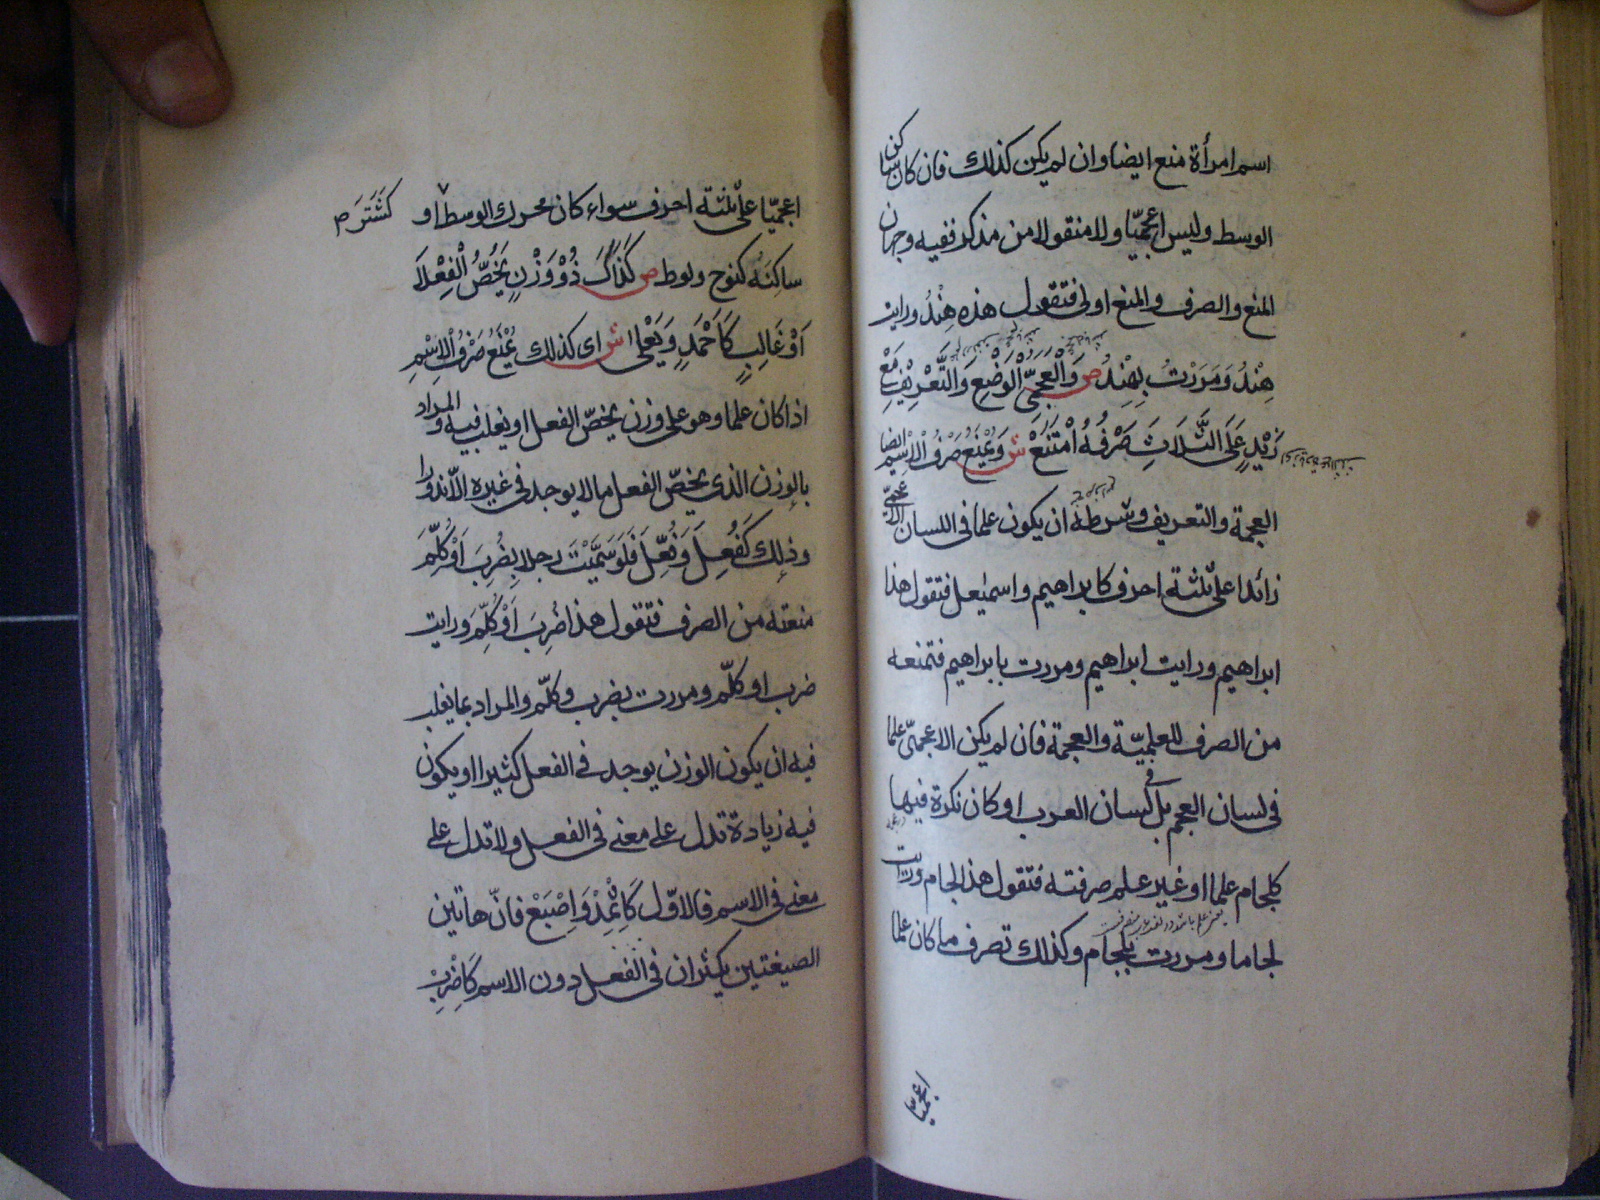 اسم امرأة منع ايضا وان لم يكن كذلك فان كان ساكن
الوسط وليس اعجميّا ولا منقولا من مذكر ففيه وجهان
المنع والصرف والمنع اولى فتقول هذه هِنْدُ ورايت
هِنْدَ وَمَرَرْتُ بِهِنْدَ ص وَالْعَجَمِيّ الْوَضْعِ وَالتَّعْرِيْفِ مَعْ
زَيْدٍ عَلَى الثَّلَاثِ صَرْفُهُ امْتَنَعْ ش وَيُمْنَعُ صَرْفُ الْاِسْمِ ايضا
العجمة والتعريف وشرطه ان يكون علما فى اللسان الاعجمىّ
زائدا على ثلثة احرف كابراهيم واسمٰعيل فتقول هذا
ابراهيم ورايت ابراهيم ومررت بابراهيم فتمنعه
من الصرف للعلميّة والعجمة فان لم يكن الاعجمىّ علما
فى لسان العجم بل فى لسان العرب او كان نكرة فيها
كلجام علما او غير علم صرفته فتقول هذا لجام ورايت
لجاما ومررت بلجام وكذلك تصرف ما كان علما
اعجميّا
اعجميّا على ثلثة احرف سواء كان محرك الوسط او
كَشَتَرَ م
ساكنَهُ كنوح ولوط ص كَذَاكَ ذُوْ وَزْنٍ يَخُصُّ الْفِعْلَا
اَوْ غَالِبٍ كَاَحْمَدٍ وَيَعْلَى ش اى كذلك يُمْنَعُ صَرْفُ الْاِسْمِ
اذا كان علما وهو على وزن يخصّ الفعل او يغلب فيه والمراد
بالوزن الذى يخصّ الفعل ما لا يوجد فى غيره الّا ندورا
وذلك كَفُعِلَ وَفُعِّلَ فَلَوْ سَمَّيْتَ رجلا بِضُرِبَ اَوْ كُلِّمَ
منعته من الصرف فتقول هذا ضُرِبَ اَوْ كُلِّمَ ورايت
ضرب او كلّم ومررت بضرب وكلّم والمراد بما يغلب
فيه ان يكون الوزن يوجد فى الفعل كثيرا او يكون
فيه زيادة تدل على معنى فى الفعل ولا تدل على
معنى فى الاسم فالاوّل كَاِثْمِدْ وَاِصْبَعْ فانّ هاتين
الصيغتين يكثران فى الفعل دون الاسم كَاضْرِبْ